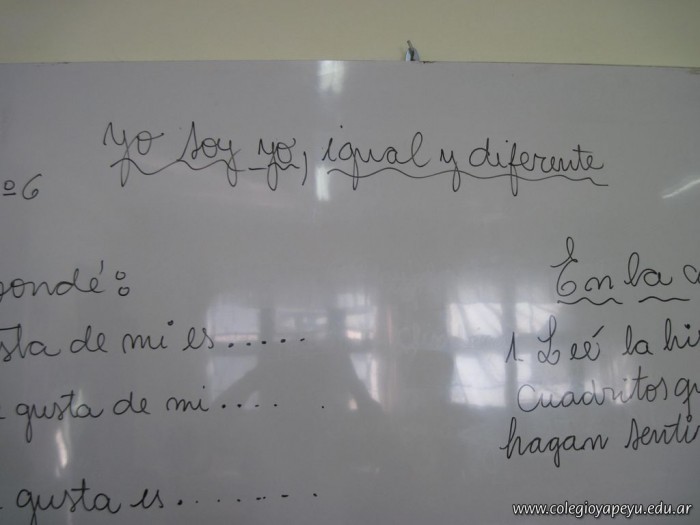 yo soy yo, igual y diferente
º6
pondé:
sta de mi es.....
e gusta de mi.... .
e gusta es.......
En la c
1 Leé la hi
cuadritos qu
hagan senti
www.colegioyapeyu.edu.ar